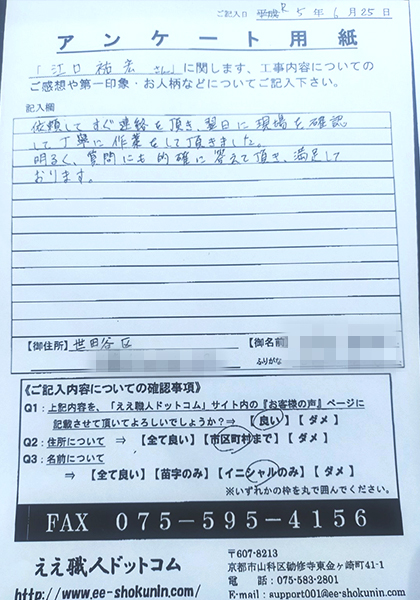 ご記入日 平成 R 5年 6月 25日
アンケート用紙
「江口 祐宏 さん」に関します、工事内容についての
ご感想や第一印象・お人柄などについてご記入下さい。
記入欄
依頼してすぐ連絡を頂き、翌日に現場を確認
して丁寧に作業をして頂きました。
明るく、質問にも的確に答えて頂き、満足して
おります。
【御住所】世田谷区
【御名前】
ふりがな
《ご記入内容についての確認事項》
Q1：上記内容を、「ええ職人ドットコム」サイト内の『お客様の声』ページに
記載させて頂いてよろしいでしょうか？⇒ 【良い】【ダメ】
Q2：住所について ⇒ 【全て良い】【市区町村まで】【ダメ】
Q3：名前について
⇒ 【全て良い】【苗字のみ】【イニシャルのみ】【ダメ】
※いずれかの枠を丸で囲んでください。
FAX 075-595-4156
ええ職人ドットコム
http://www.ee-shokunin.com/
〒607-8213
京都市山科区勧修寺東金ヶ崎町41-1
電話：075-583-2801
E-mail：support001@ee-shokunin.com